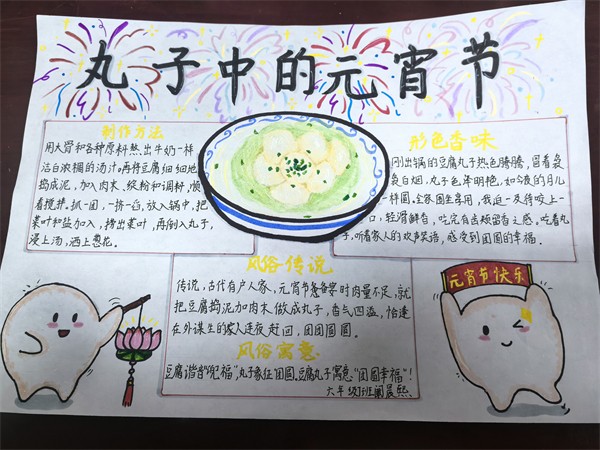 丸子中的元宵节
制作方法
用大骨和各种原料熬出牛奶一样
洁白浓稠的汤汁。再将豆腐细细地
捣成泥，加入肉末、淀粉和调料，顺
着搅拌。抓一团，一挤一舀，放入锅中，把
菜叶和盐加入，捞出菜叶，再倒入丸子，
浸上汤，洒上葱花。
形色香味
刚出锅的豆腐丸子热色腾腾，冒着袅
袅白烟，丸子色泽明艳，如今夜的月儿
一样圆。全家围坐享用，我迫不及待咬上一
口，轻滑鲜香，吃完有齿颊留香之感。吃着丸
子，听着家人的欢声笑语，感受到团圆的幸福。
风俗传说
传说，古代有户人家，元宵节筹备宴时肉量不足，就
把豆腐捣泥加肉末做成丸子，香气四溢，恰逢
在外谋生的家人连夜赶回，团团圆圆。
风俗寓意
豆腐谐音"兜福"，丸子象征团圆，豆腐丸子寓意"团圆幸福"！
六年级班
元宵节快乐